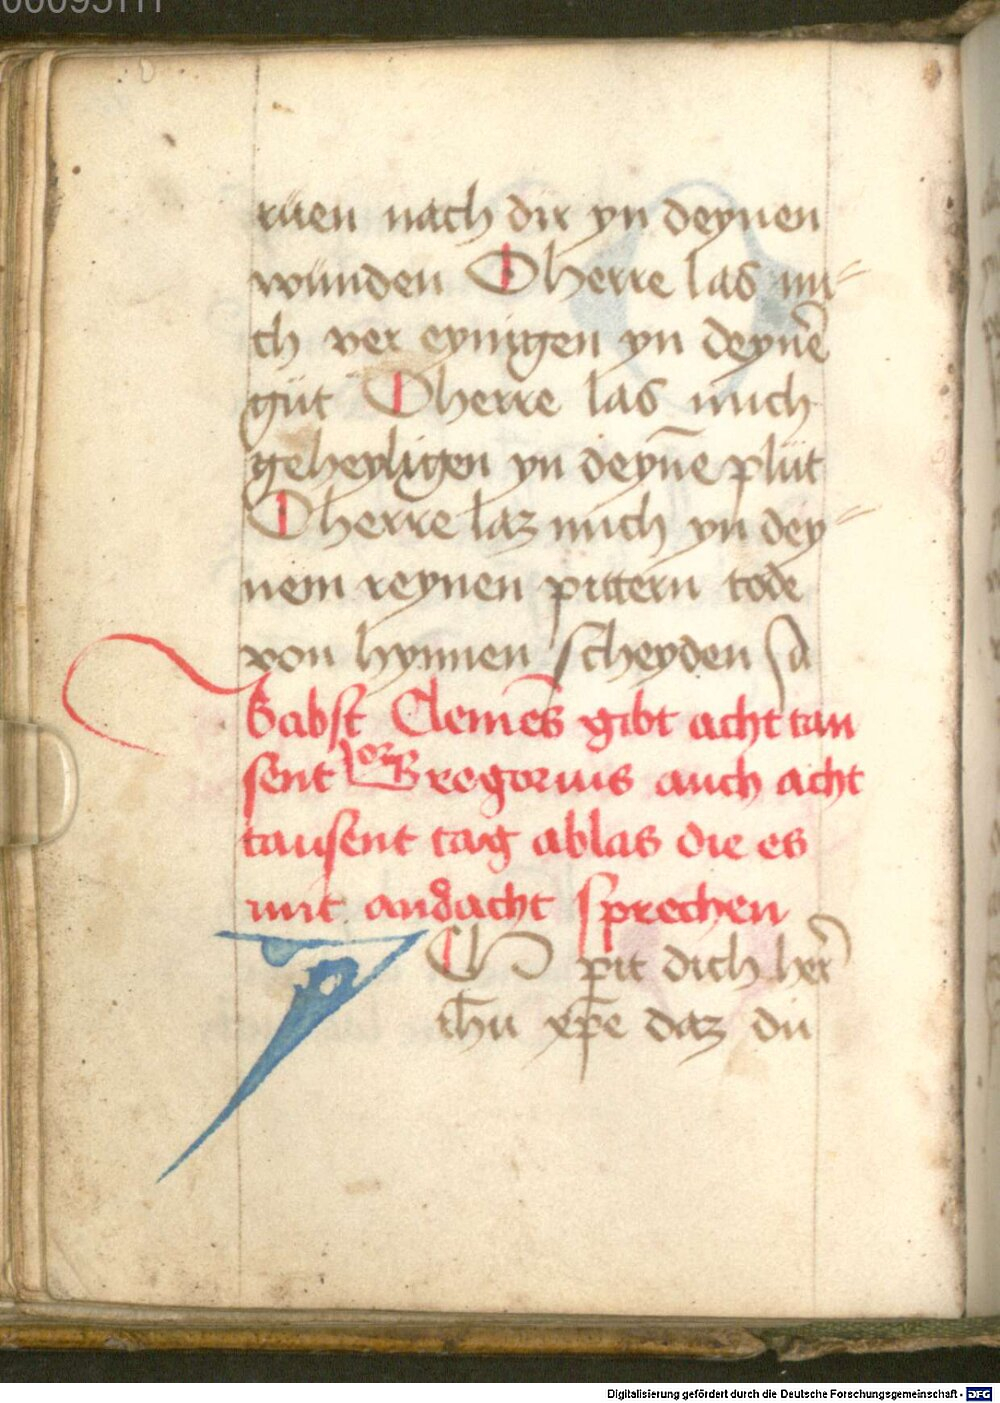 rüen nach dir yn deynen
wunden O herre las mi-
ch ver eynigen yn deynē
güt O herre las mich
geheyligen yn deyn̄e plüt
O herre laz mich yn dey-
nem reynen pittern tode
von hynnen scheyden
Babst Clemēs gibt acht tau
sent Gregorius auch acht
tausent tag ablas die es
mit andacht sprechen
ICh pit dich her̄
ih̄u xp̄e daz du
Digitalisierung gefördert durch die Deutsche Forschungsgemeinschaft - DFG